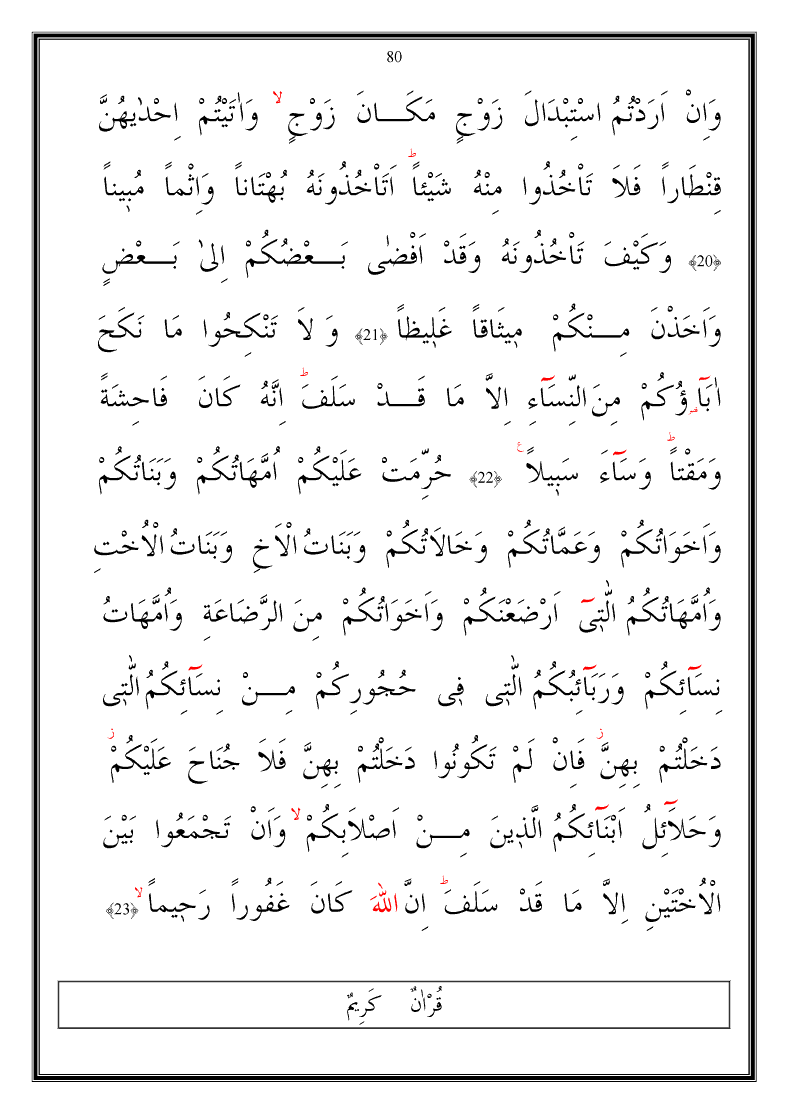 80
وَاِنْ اَرَدْتُمُ اسْتِبْدَالَ زَوْجٍ مَكَـــانَ زَوْجٍ ۙ وَاٰتَيْتُمْ اِحْدٰيهُنَّ
قِنْطَاراً فَلاَ تَاْخُذُوا مِنْهُ شَيْئاً ۜؕ اَتَاْخُذُونَهُ بُهْتَاناً وَاِثْماً مُبٖيناً
﴿20﴾ وَكَيْفَ تَاْخُذُونَهُ وَقَدْ اَفْضٰى بَـــعْضُكُمْ اِلىٰ بَـــعْضٍ
وَاَخَذْنَ مِـــنْكُمْ مٖيثَاقاً غَلٖيظاً ﴿21﴾ وَ لاَ تَنْكِحُوا مَا نَكَحَ
اٰبَاۤؤُكُمْ مِنَ النِّسَاۤءِ اِلاَّ مَا قَـــدْ سَلَفَ ؕ اِنَّهُ كَانَ فَاحِشَةً
وَمَقْتاً ؕ وَسَاۤءَ سَبٖيلاً ࣖ ﴿22﴾ حُرِّمَتْ عَلَيْكُمْ اُمَّهَاتُكُمْ وَبَنَاتُكُمْ
وَاَخَوَاتُكُمْ وَعَمَّاتُكُمْ وَخَالاَتُكُمْ وَبَنَاتُ الْاَخِ وَبَنَاتُ الْاُخْتِ
وَاُمَّهَاتُكُمُ الّٰتٖىۤ اَرْضَعْنَكُمْ وَاَخَوَاتُكُمْ مِنَ الرَّضَاعَةِ وَاُمَّهَاتُ
نِسَاۤئِكُمْ وَرَبَاۤئِبُكُمُ الّٰتٖى فٖى حُجُورِكُمْ مِـــنْ نِسَاۤئِكُمُ الّٰتٖى
دَخَلْتُمْ بِهِنَّ ؗ فَاِنْ لَمْ تَكُونُوا دَخَلْتُمْ بِهِنَّ فَلاَ جُنَاحَ عَلَيْكُمْ ؗ
وَحَلاَۤئِلُ اَبْنَاۤئِكُمُ الَّذٖينَ مِـــنْ اَصْلاَبِكُمْ ۙ وَاَنْ تَجْمَعُوا بَيْنَ
الْاُخْتَيْنِ اِلاَّ مَا قَدْ سَلَفَ ؕ اِنَّ اللّٰهَ كَانَ غَفُوراً رَحٖيماً ۙ ﴿23﴾
قُرْاٰنٌ كَرِيمٌ